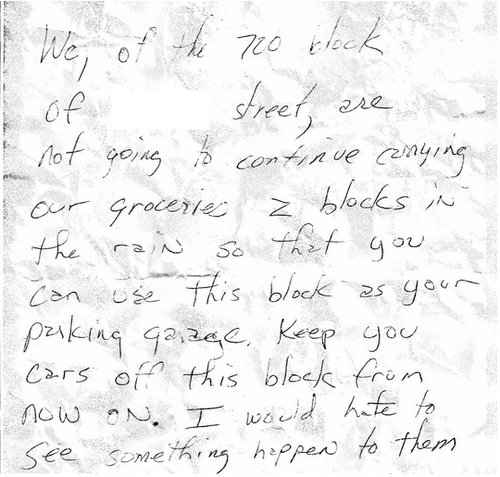 We, of the 720 block
of street, are
not going to continue carrying
our groceries 2 blocks in
the rain so that you
can use this block as your
parking garage. Keep you
cars off this block from
now on. I would hate to
see something happen to them